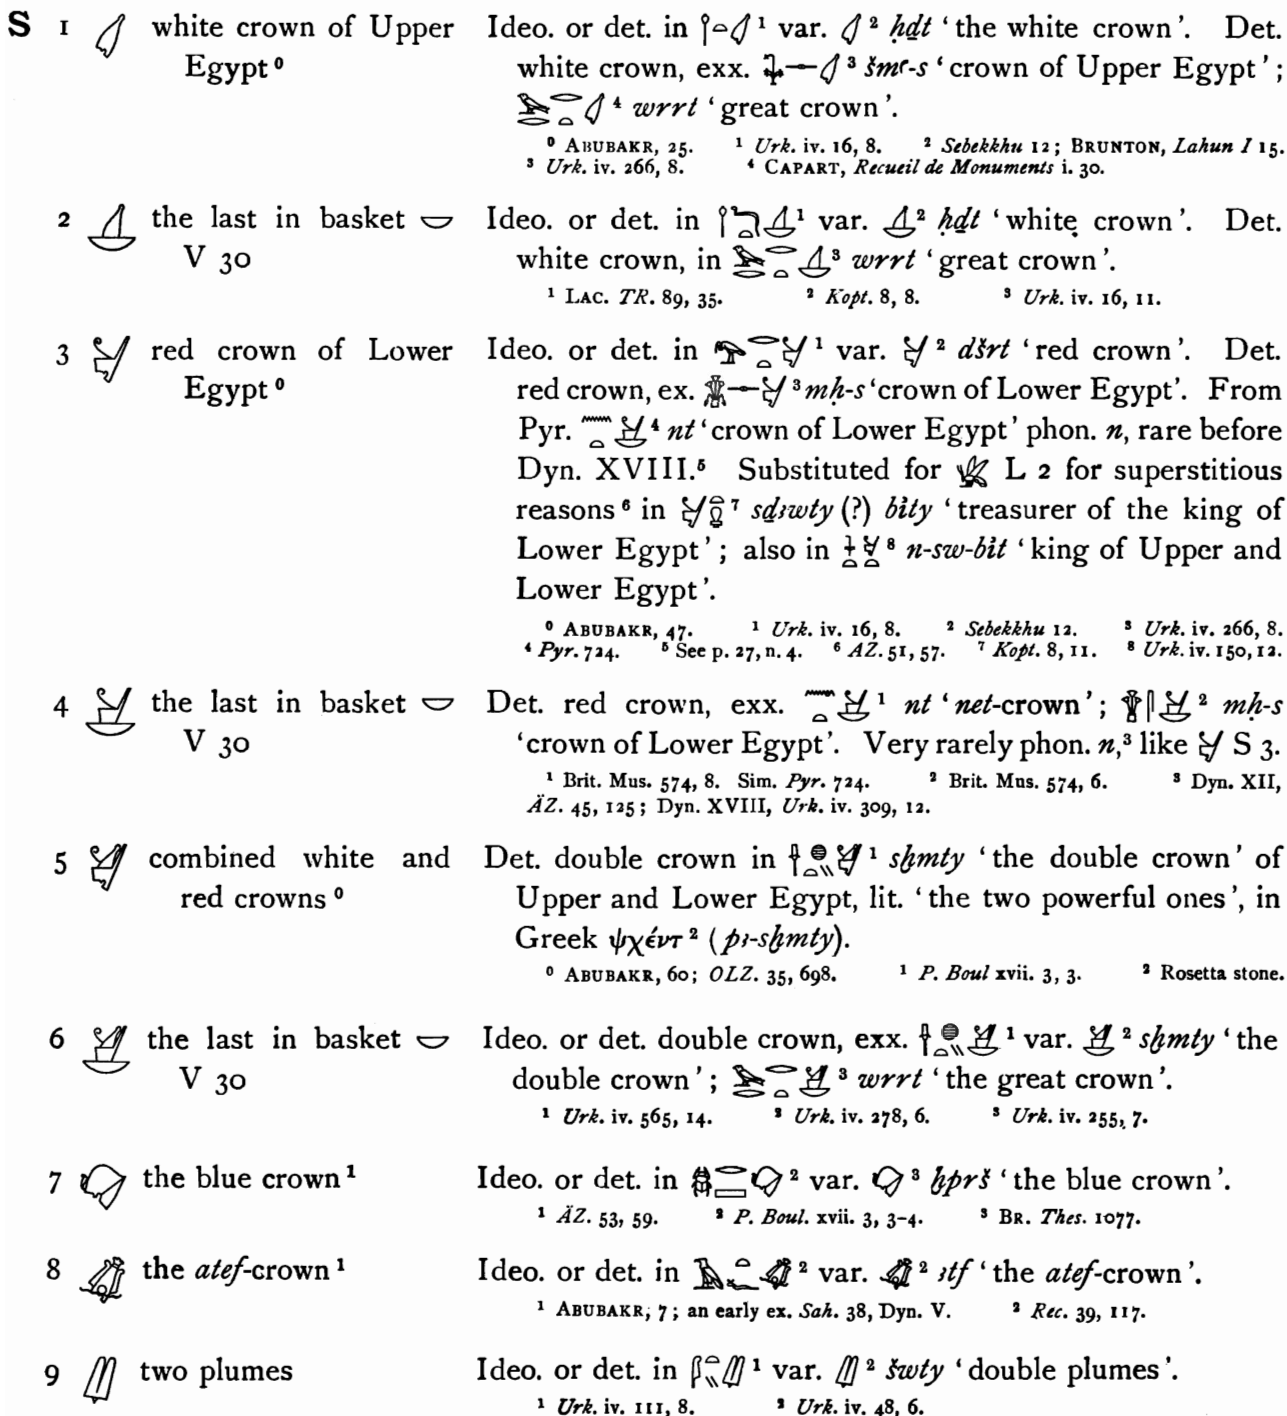 S 1 𓋑 white crown of Upper Ideo. or det. in 𓌉𓏏𓋑¹ var. 𓋑² ḥḏt ‘the white crown’. Det.
Egypt⁰ white crown, exx. 𓇗𓊃𓋑³ šmꜥ-s ‘crown of Upper Egypt’;
𓅨𓂋𓂋𓏏𓋑⁴ wrrt ‘great crown’.
⁰ ABUBAKR, 25. ¹ Urk. iv. 16, 8. ² Sebekkhu 12; BRUNTON, Lahun I 15.
³ Urk. iv. 266, 8. ⁴ CAPART, Recueil de Monuments i. 30.
2 𓋒 the last in basket 𓎟 Ideo. or det. in 𓌉𓆓𓏏𓋒¹ var. 𓋒² ḥḏt ‘white crown’. Det.
V 30 white crown, in 𓅨𓂋𓂋𓏏𓋒³ wrrt ‘great crown’.
¹ LAC. TR. 89, 35. ² Kopt. 8, 8. ³ Urk. iv. 16, 11.
3 𓋔 red crown of Lower Ideo. or det. in 𓅟𓂋𓏏𓋔¹ var. 𓋔² dšrt ‘red crown’. Det.
Egypt⁰ red crown, ex. 𓇉𓊃𓋔³ mḥ-s ‘crown of Lower Egypt’. From
Pyr. 𓈖𓏏𓋕⁴ nt ‘crown of Lower Egypt’ phon. n, rare before
Dyn. XVIII.⁵ Substituted for 𓆤 L 2 for superstitious
reasons⁶ in 𓋔𓋩⁷ sḏꜣwty (?) bı͗ty ‘treasurer of the king of
Lower Egypt’; also in 𓇓𓏏𓋔𓏏⁸ n-sw-bı͗t ‘king of Upper and
Lower Egypt’.
⁰ ABUBAKR, 47. ¹ Urk. iv. 16, 8. ² Sebekkhu 12. ³ Urk. iv. 266, 8.
⁴ Pyr. 724. ⁵ See p. 27, n. 4. ⁶ AZ. 51, 57. ⁷ Kopt. 8, 11. ⁸ Urk. iv. 150, 12.
4 𓋕 the last in basket 𓎟 Det. red crown, exx. 𓈖𓏏𓋕¹ nt ‘net-crown’; 𓇉𓋴𓋕² mḥ-s
V 30 ‘crown of Lower Egypt’. Very rarely phon. n,³ like 𓋔 S 3.
¹ Brit. Mus. 574, 8. Sim. Pyr. 724. ² Brit. Mus. 574, 6. ³ Dyn. XII,
ÄZ. 45, 125; Dyn. XVIII, Urk. iv. 309, 12.
5 𓋖 combined white and Det. double crown in 𓌂𓐍𓏏𓏭𓋖¹ sḫmty ‘the double crown’ of
red crowns⁰ Upper and Lower Egypt, lit. ‘the two powerful ones’, in
Greek ψχέντ² (pꜣ-sḫmty).
⁰ ABUBAKR, 60; OLZ. 35, 698. ¹ P. Boul xvii. 3, 3. ² Rosetta stone.
6 𓋗 the last in basket 𓎟 Ideo. or det. double crown, exx. 𓌂𓐍𓏏𓏭𓋗¹ var. 𓋗² sḫmty ‘the
V 30 double crown’; 𓅨𓂋𓂋𓏏𓋗³ wrrt ‘the great crown’.
¹ Urk. iv. 565, 14. ² Urk. iv. 278, 6. ³ Urk. iv. 255, 7.
7 𓋙 the blue crown¹ Ideo. or det. in 𓆣𓂋𓈙𓋙² var. 𓋙³ ḫprš ‘the blue crown’.
¹ ÄZ. 53, 59. ² P. Boul. xvii. 3, 3–4. ³ BR. Thes. 1077.
8 𓋚 the atef-crown¹ Ideo. or det. in 𓄿𓏏𓆑𓋚² var. 𓋚² ꜣtf ‘the atef-crown’.
¹ ABUBAKR, 7; an early ex. Sah. 38, Dyn. V. ² Rec. 39, 117.
9 𓋛 two plumes Ideo. or det. in 𓆄𓏏𓏭𓋛¹ var. 𓋛² šwty ‘double plumes’.
¹ Urk. iv. 111, 8. ² Urk. iv. 48, 6.